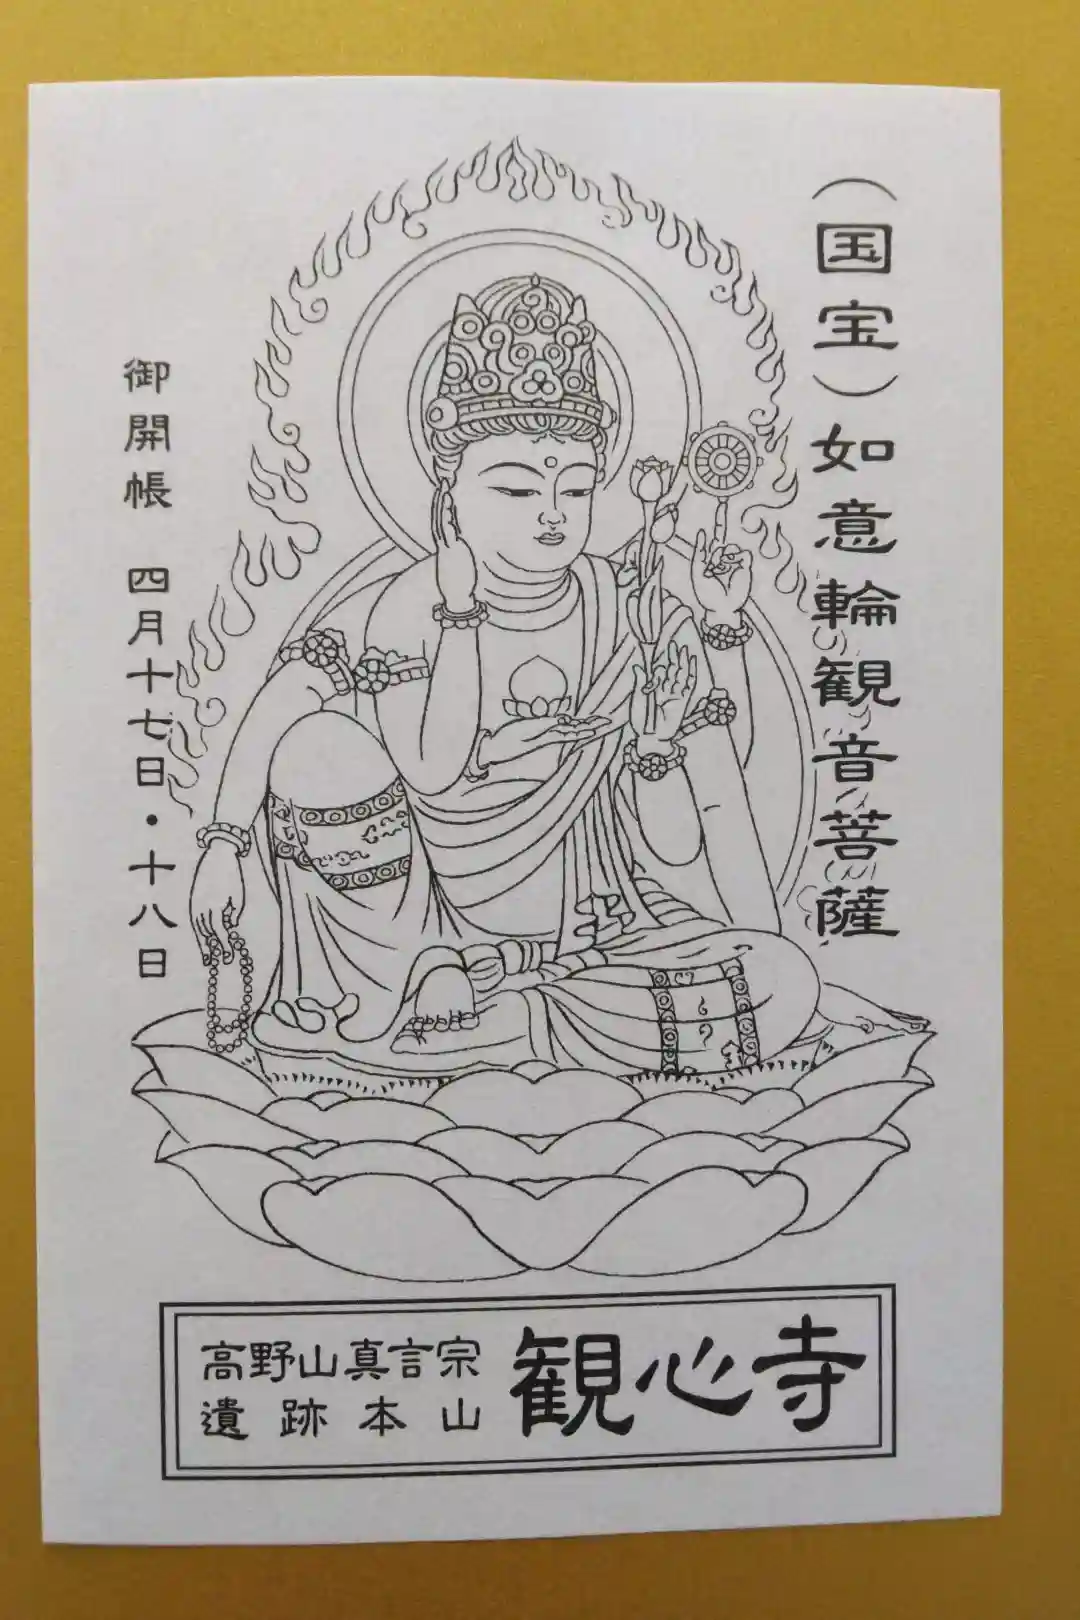 （国宝）如意輪観音菩薩
御開帳 四月十七日・十八日
高野山真言宗
遺跡本山
観心寺